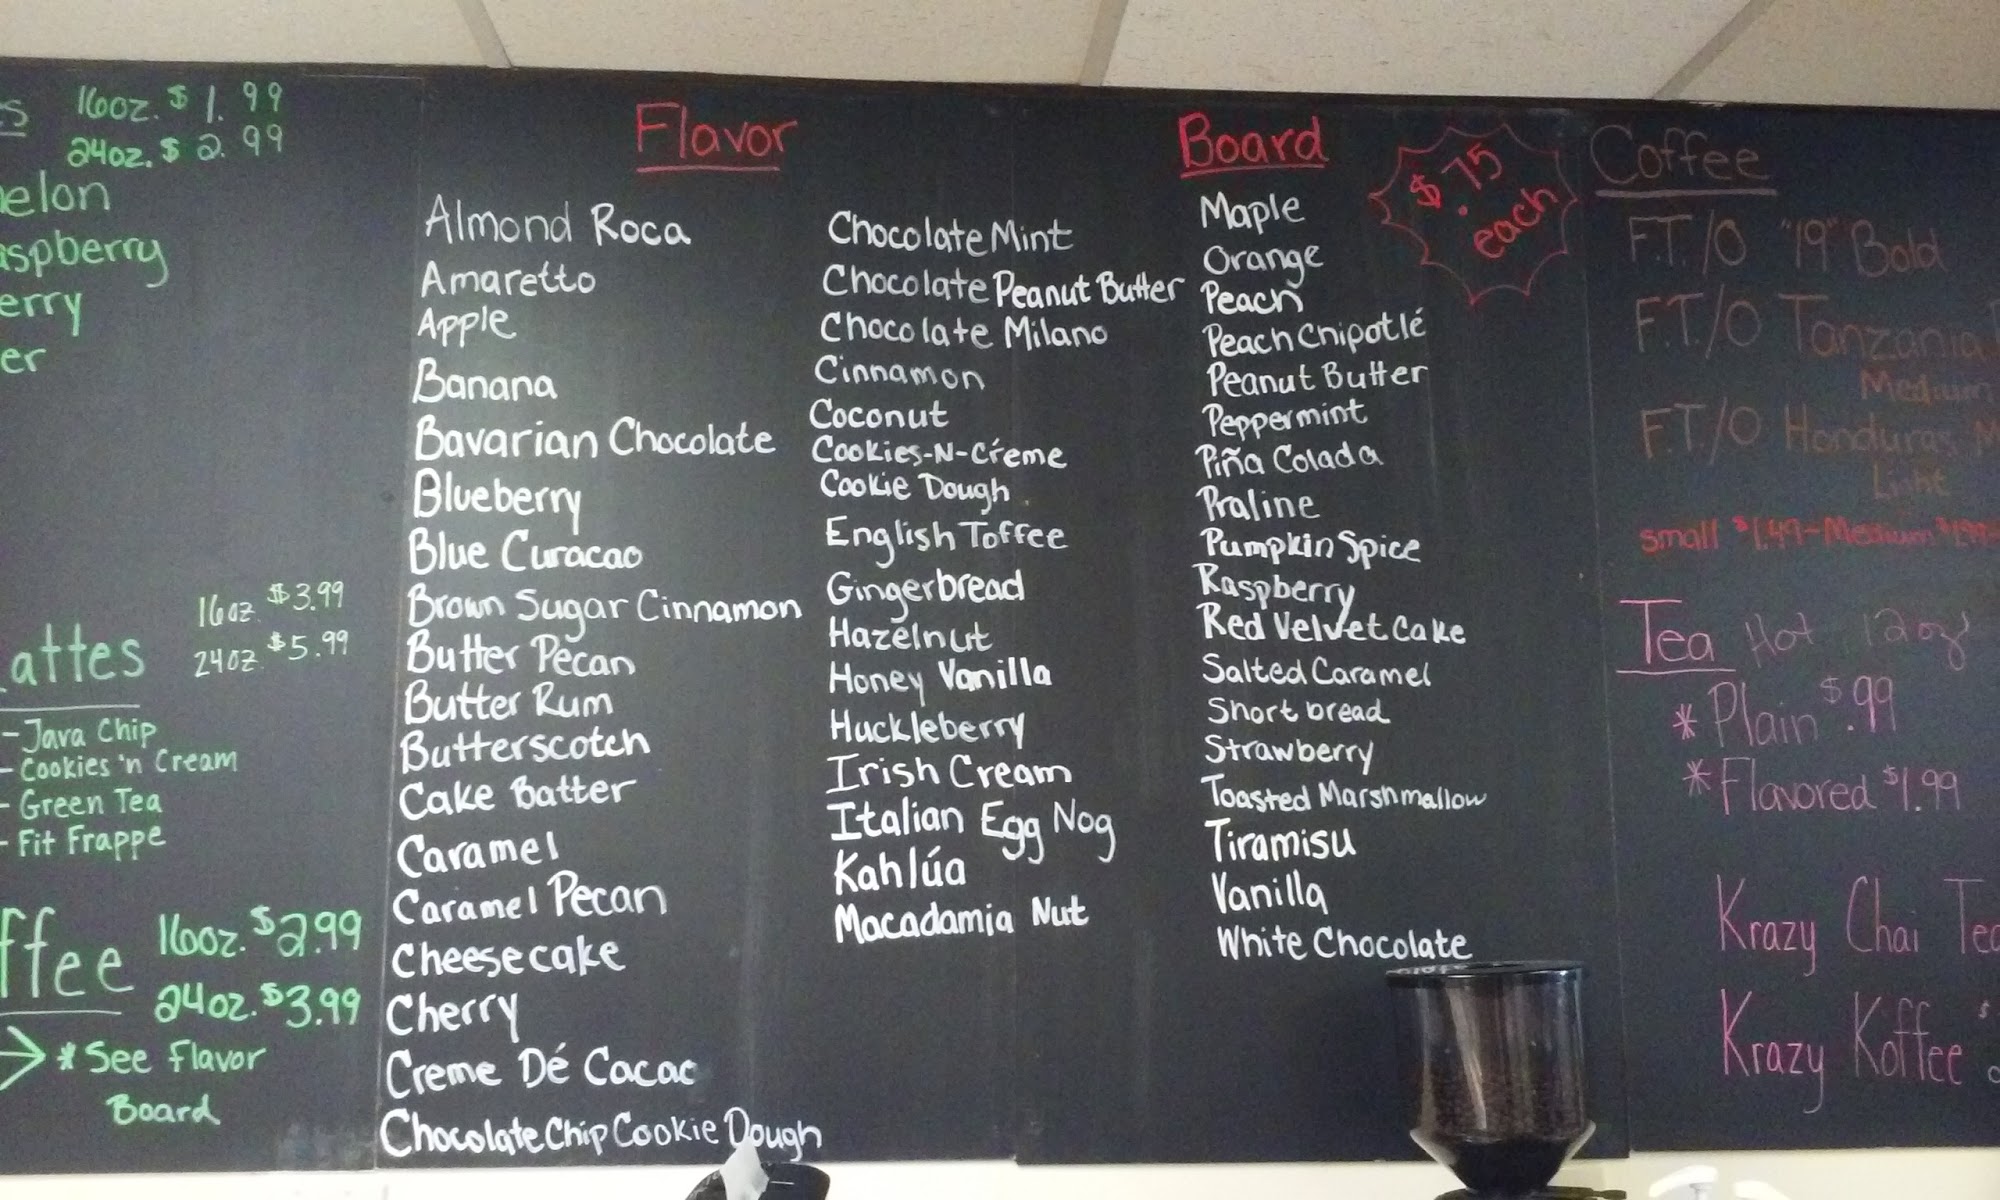 16oz. $1.99
24oz. $2.99
elon
aspberry
erry
er
attes
16oz. $3.99
24oz. $5.99
- Java Chip
- Cookies 'n Cream
- Green Tea
- Fit Frappe
ffee
16oz. $2.99
24oz. $3.99
* See Flavor
Board
Flavor Board
$.75
each
Almond Roca
Amaretto
Apple
Banana
Bavarian Chocolate
Blueberry
Blue Curacao
Brown Sugar Cinnamon
Butter Pecan
Butter Rum
Butterscotch
Cake Batter
Caramel
Caramel Pecan
Cheesecake
Cherry
Creme Dé Cacao
Chocolate Chip Cookie Dough
Chocolate Mint
Chocolate Peanut Butter
Chocolate Milano
Cinnamon
Coconut
Cookies-N-Créme
Cookie Dough
English Toffee
Gingerbread
Hazelnut
Honey Vanilla
Huckleberry
Irish Cream
Italian Egg Nog
Kahlúa
Macadamia Nut
Maple
Orange
Peach
Peach Chipotlé
Peanut Butter
Peppermint
Piña Colada
Praline
Pumpkin Spice
Raspberry
Red Velvet Cake
Salted Caramel
Shortbread
Strawberry
Toasted Marshmallow
Tiramisu
Vanilla
White Chocolate
Coffee
F.T./O "19" Bold
F.T./O Tanzania
Medium
F.T./O Honduras
Light
small $1.49-Medium $1.99
Tea Hot 12oz
* Plain $.99
* Flavored $1.99
Krazy Chai Tea
Krazy Koffee